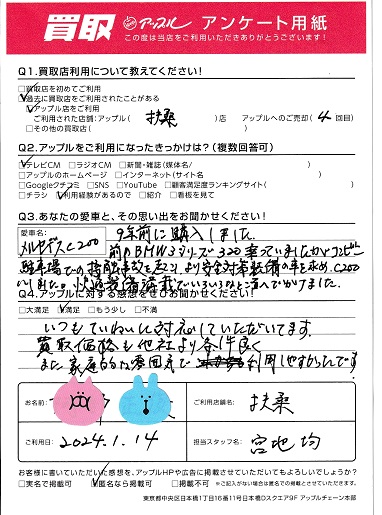 買取 アップル アンケート用紙
この度は当店をご利用いただきありがとうございます！
Q1.買取店利用について教えてください！
□買取店を初めてご利用
☑過去に買取店をご利用されたことがある
☑アップル店をご利用
ご利用された店舗：アップル( 扶桑 )店 アップルへのご売却( 4 回目)
□その他の買取店( )
Q2.アップルをご利用になったきっかけは？(複数回答可)
☑テレビCM □ラジオCM □新聞・雑誌(媒体名/ )
□アップルのホームページ □インターネット(サイト名 )
□Googleクチコミ □SNS □YouTube □顧客満足度ランキングサイト( )
□チラシ ☑利用経験があるので □紹介 □看板を見て
Q3.あなたの愛車と、その思い出をお聞かせください！
愛車名：
メルセデスC200
9年前に購入しました。
前のBMW3シリーズ320乗っていましたがコンビニ
駐車場での接触事故を起こし、より安全対策装備の車を求め、C200
にしました。
Q4.アップルに対する感想をぜひお聞かせください！
□大満足 ☑満足 □もう少し □不満
いつもていねいに対応していただいてます。
買取価格も他社より条件良く
また家庭的な雰囲気で 利用しやすかったです
お名前
ご利用店舗名： 扶桑
ご利用日： 2024.1.14
担当スタッフ名： 宮地 均
お客様に書いていただいた感想を、アップルHPや広告に掲載させていただいてもよろしいでしょうか？
□実名で掲載可 ☑匿名なら掲載可 □掲載不可 ※ご記入がない場合は匿名での掲載とさせていただきます。
東京都中央区日本橋1丁目16番11号日本橋Dスクエア9F アップルチェーン本部